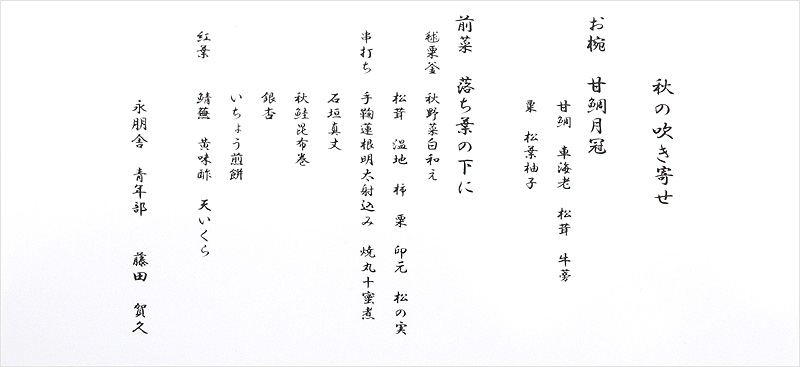 秋の吹き寄せ
お椀　甘鯛月冠
甘鯛　車海老　松茸　牛蒡
栗　松葉柚子
前菜　落ち葉の下に
毬栗釜　秋野菜白和え
松茸　温地　柿　栗　印元　松の実
串打ち　手鞠蓮根明太射込み　焼丸十蜜煮
石垣真丈
秋鮭昆布巻
銀杏
いちょう煎餅
紅葉　鯖蕪　黄味酢　天いくら
永朋舎　青年部　藤田　賀久